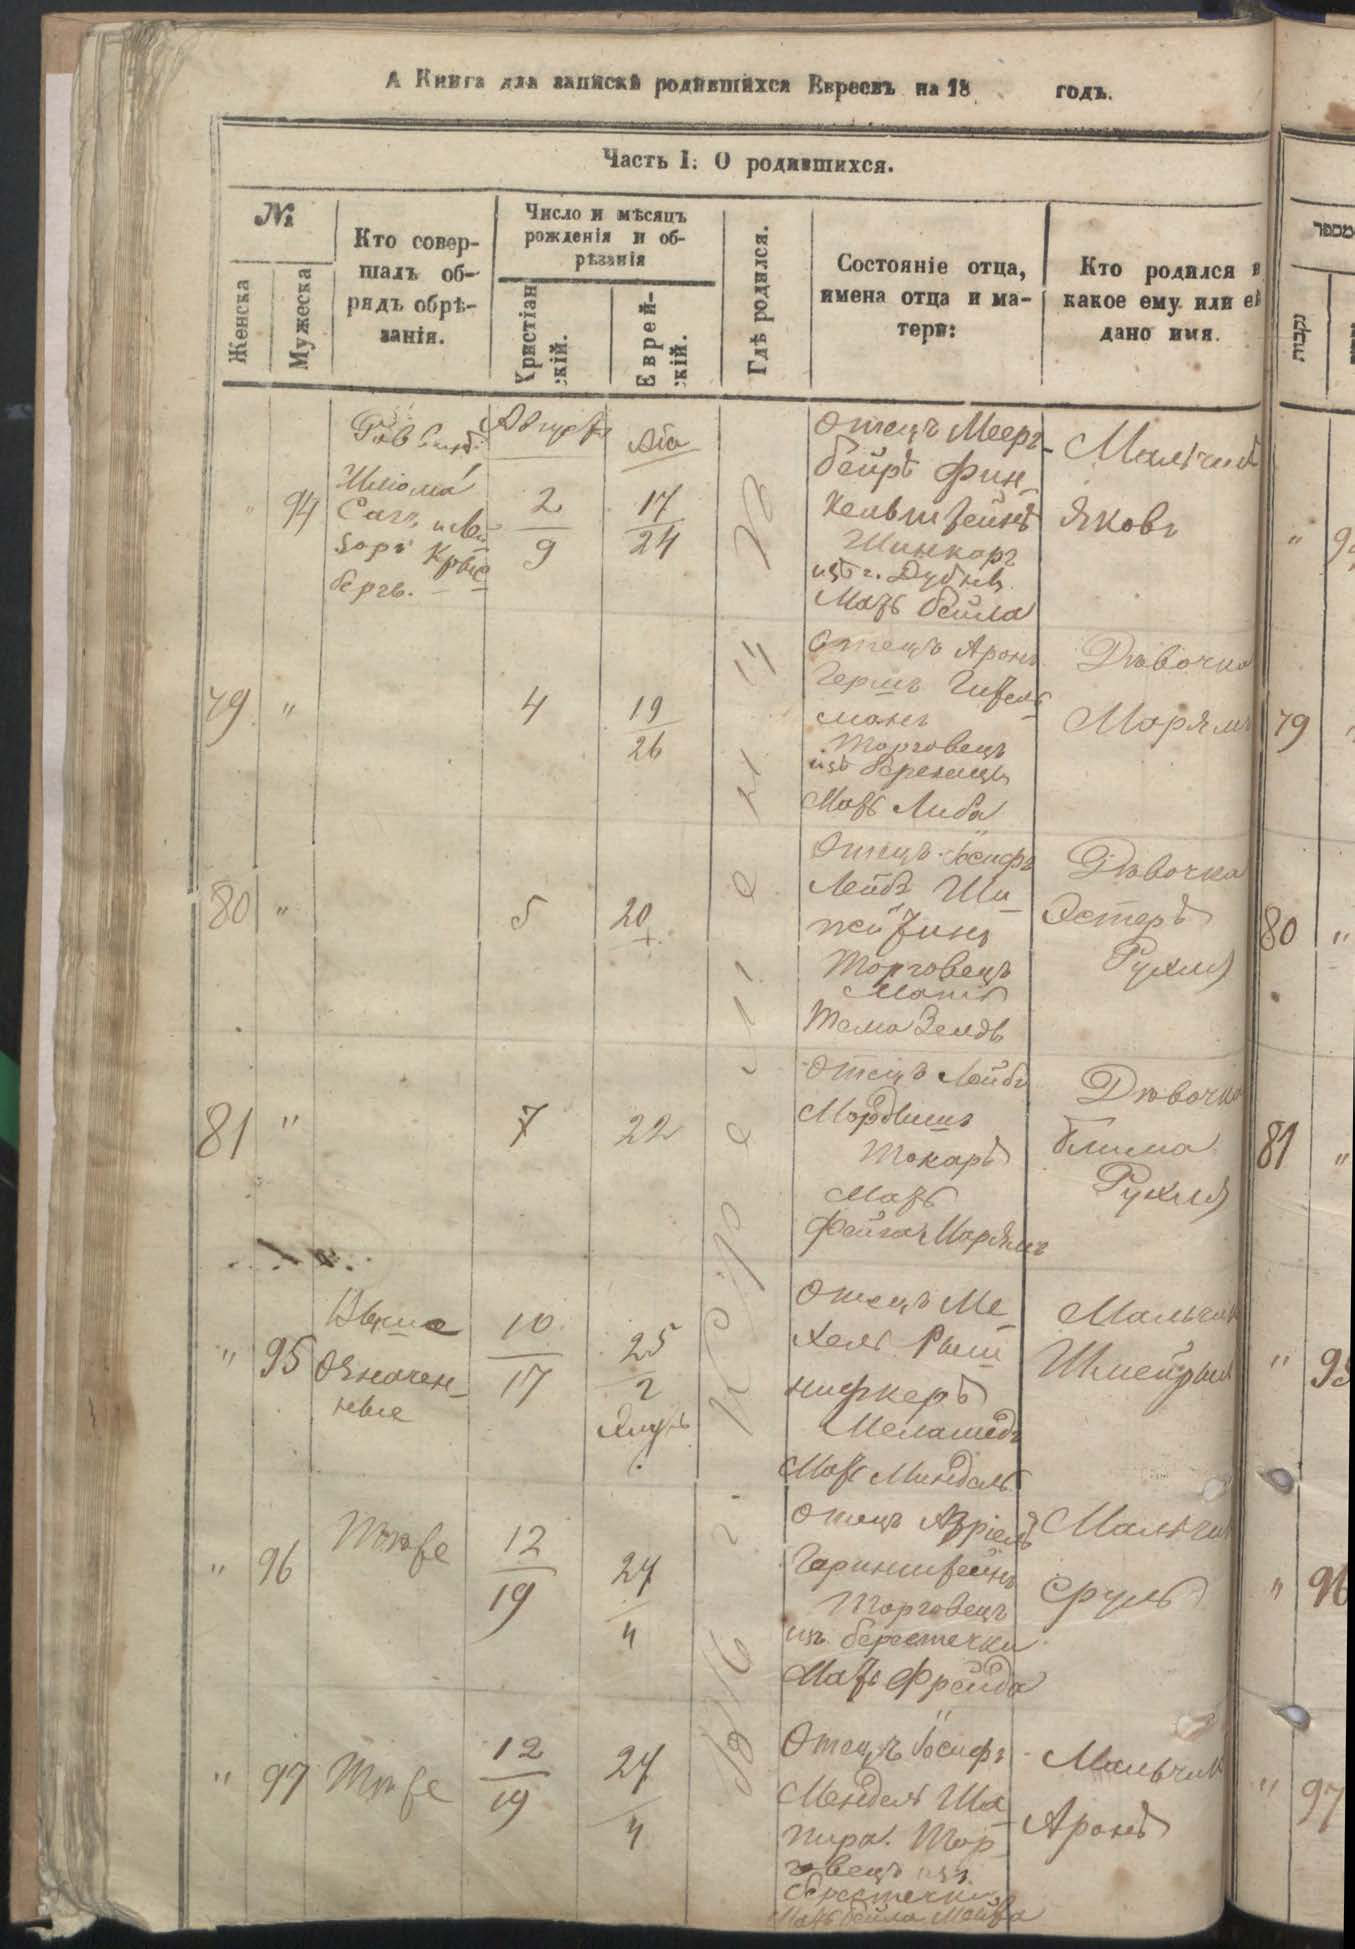 А Книга для записки родившихся Евреевъ на 18 годъ.
Часть I. О родившихся.
№
Женска
Мужеска
Кто совер-
шалъ об-
рядъ обрѣ-
занія.
Число и мѣсяцъ
рожденія и об-
рѣзанія
Христіан
скій.
Еврей-
скій.
Гдѣ родился.
Состояніе отца,
имена отца и ма-
тери:
Кто родился и
какое ему или ей
дано имя.
въ г. Кременцѣ
" 94
Шлiома
бергъ.
Августа
2
9
Аба
17
24
Отецъ Мееръ
Бейръ Фин-
кельштейнъ
Шинкарь
изъ г. Дубны
Мать Бейла
Мальчикъ
Яковъ
79 "
4
19
26
Отецъ Аронъ
Гершъ Гитель
манъ
Торговецъ
изъ
Мать Либа
Дѣвочка
Марямъ
80 "
5
20
Отецъ Іосифъ
Лейбъ
Торговецъ
Мать
Тема Зелдъ
Дѣвочка
Эстеръ
Рухля
81 "
7
22
Отецъ Лейбъ
Мордышъ
Токаръ
Мать
Фейга Марямъ
Дѣвочка
Блима
Рухля
" 95
Выше
Означен-
ные
10
17
25
2
Элулъ
Отецъ Ме-
хель Рыш
нифкеръ
Меламедъ
Мать Миндель
Мальчикъ
" 96
Тотже
12
19
27
4
Отецъ Азріель
Горинштейнъ
Торговецъ
изъ Берестечки
Мать Фрейда
Мальчикъ
Сруль
" 97
Тотже
12
19
27
4
Отецъ Іосифъ
Мендель Ша-
пира. Тор-
говецъ изъ
Берестечки
Мать Бейла
Мальчикъ
Аронъ
מספר
נקבות
79
80 "
81 "
" 95
" 96
" 97